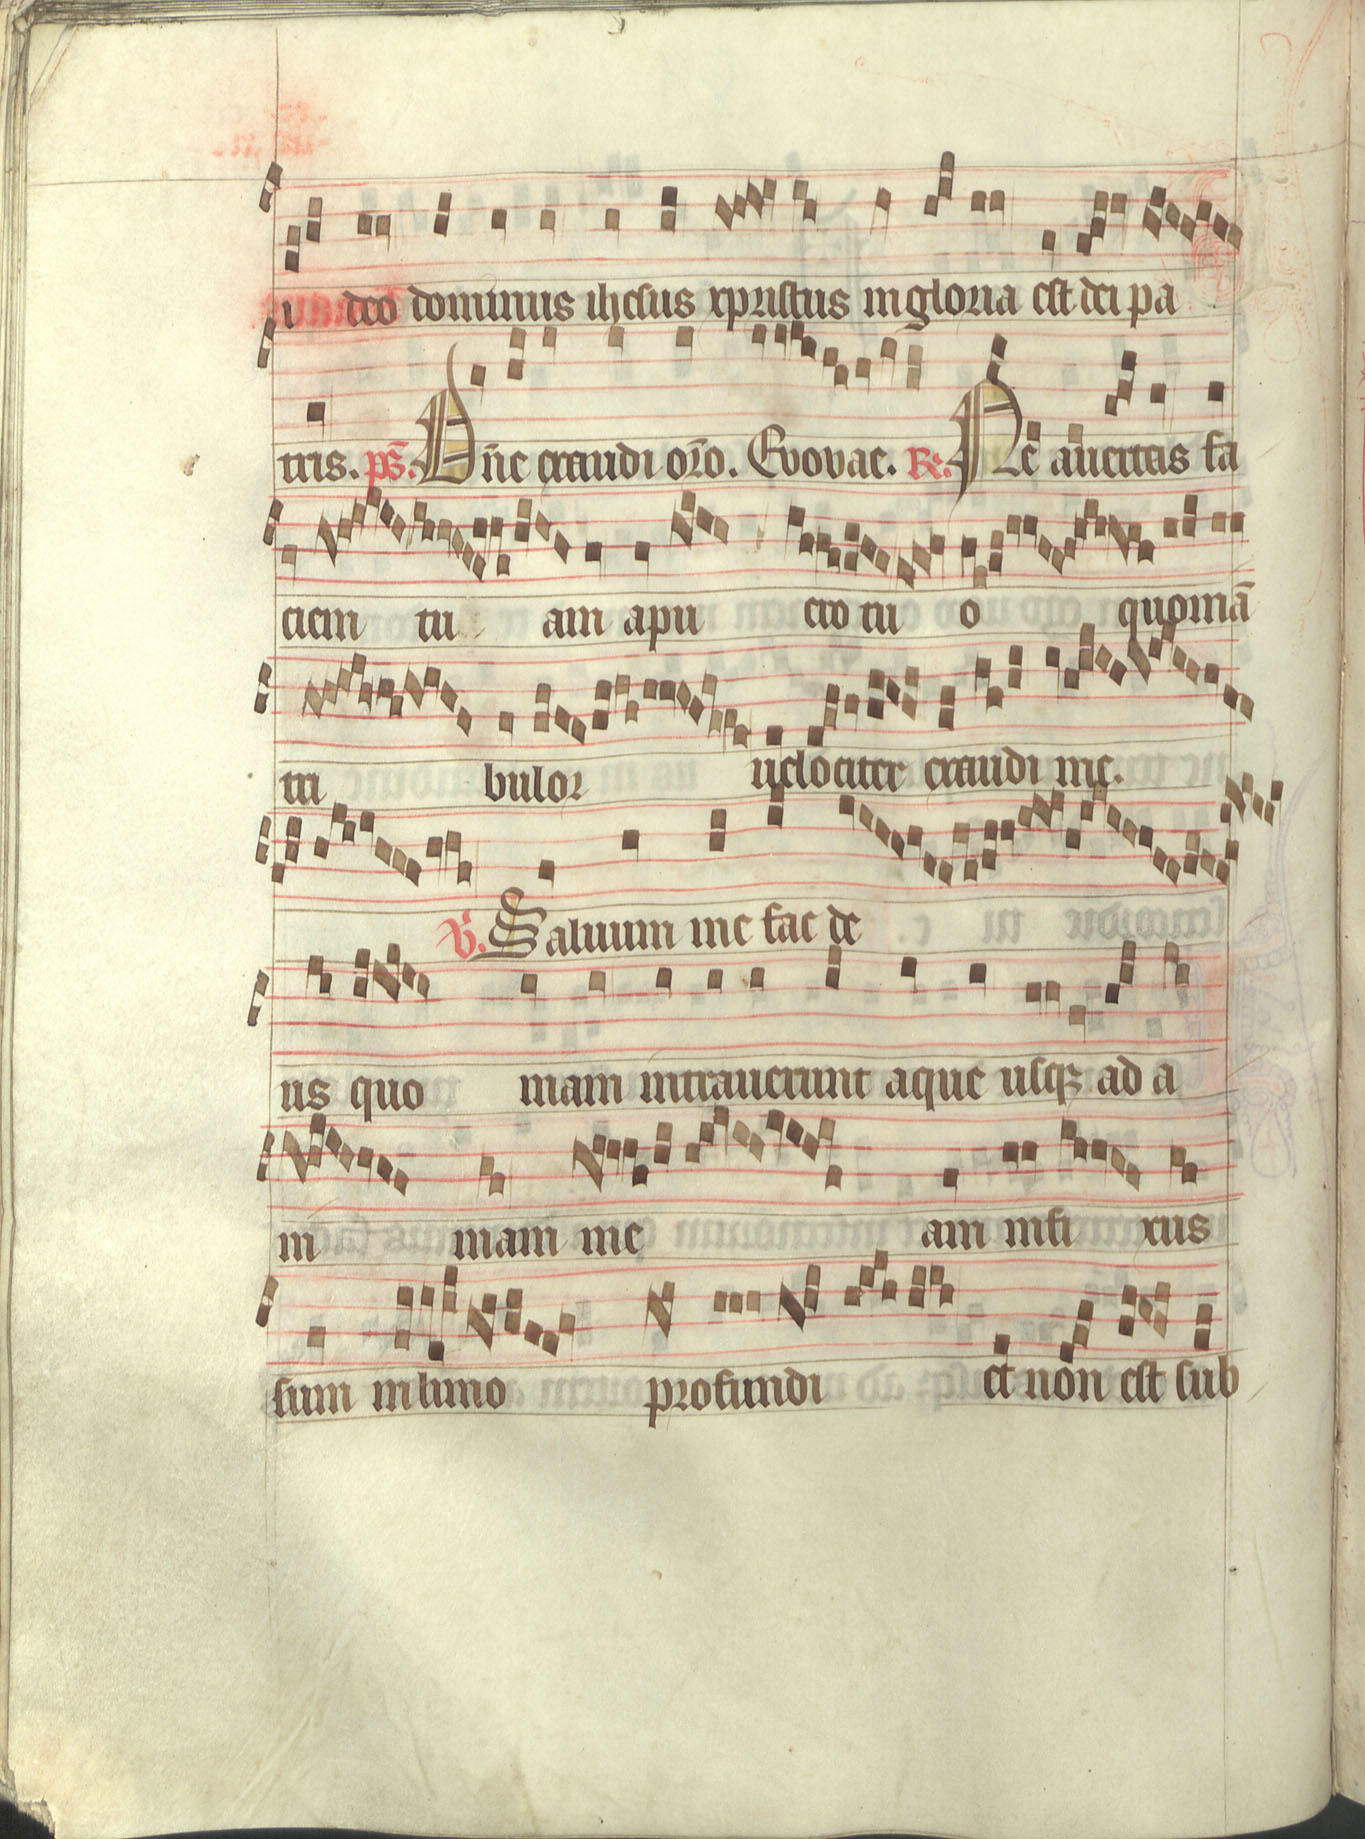 i deo dominus ihesus xpristus in gloria est dei pa
tris. ps̄. Dn̄e exaudi or̄o. Evovae. R̄. Ne auertas fa
ciem tu am a pu ero tu o quoniā
tri bulor uelociter exaudi me.
V̄. Saluum me fac de
us quo niam intrauerunt aque usqꝫ ad a
ni mam me am infi xus
sum in limo profundi et non est sub